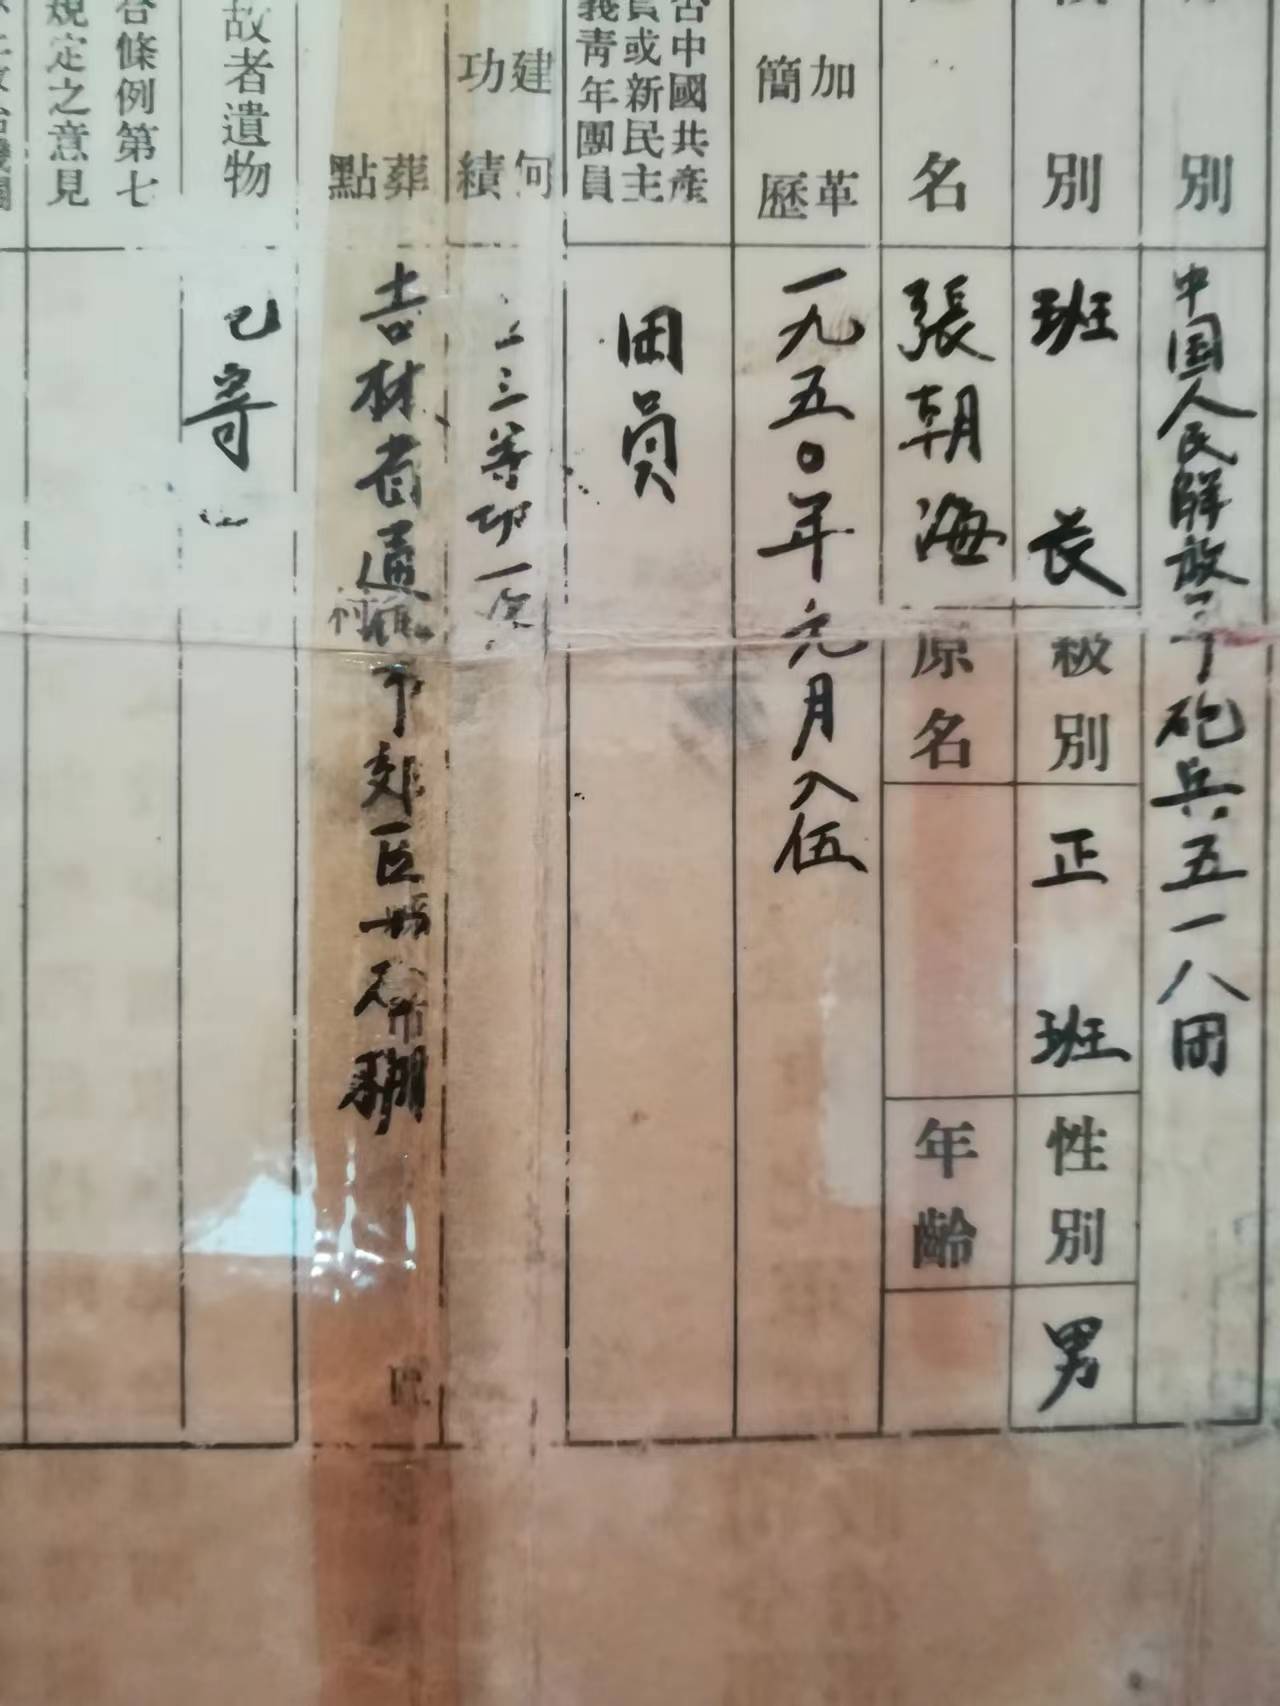 別
中国人民解放军砲兵五一八团
別
班長
級別
正班
性別
男
名
張朝海
原名
年齡
加革
簡歷
一九五〇年元月入伍
否中國共產
員或新民主
義青年團員
团員
建何
功績
三等功一次
葬
點
吉林省通化市郊区
故者遺物
已寄
合條例第七
規定之意見